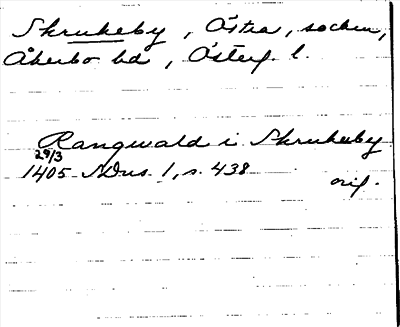 Skrukeby, Östra, socken,
Åkerbo hd, Österg. l.
Rangwald i Skrukeby
29/3
1405 SDns. 1, s. 438
orig.